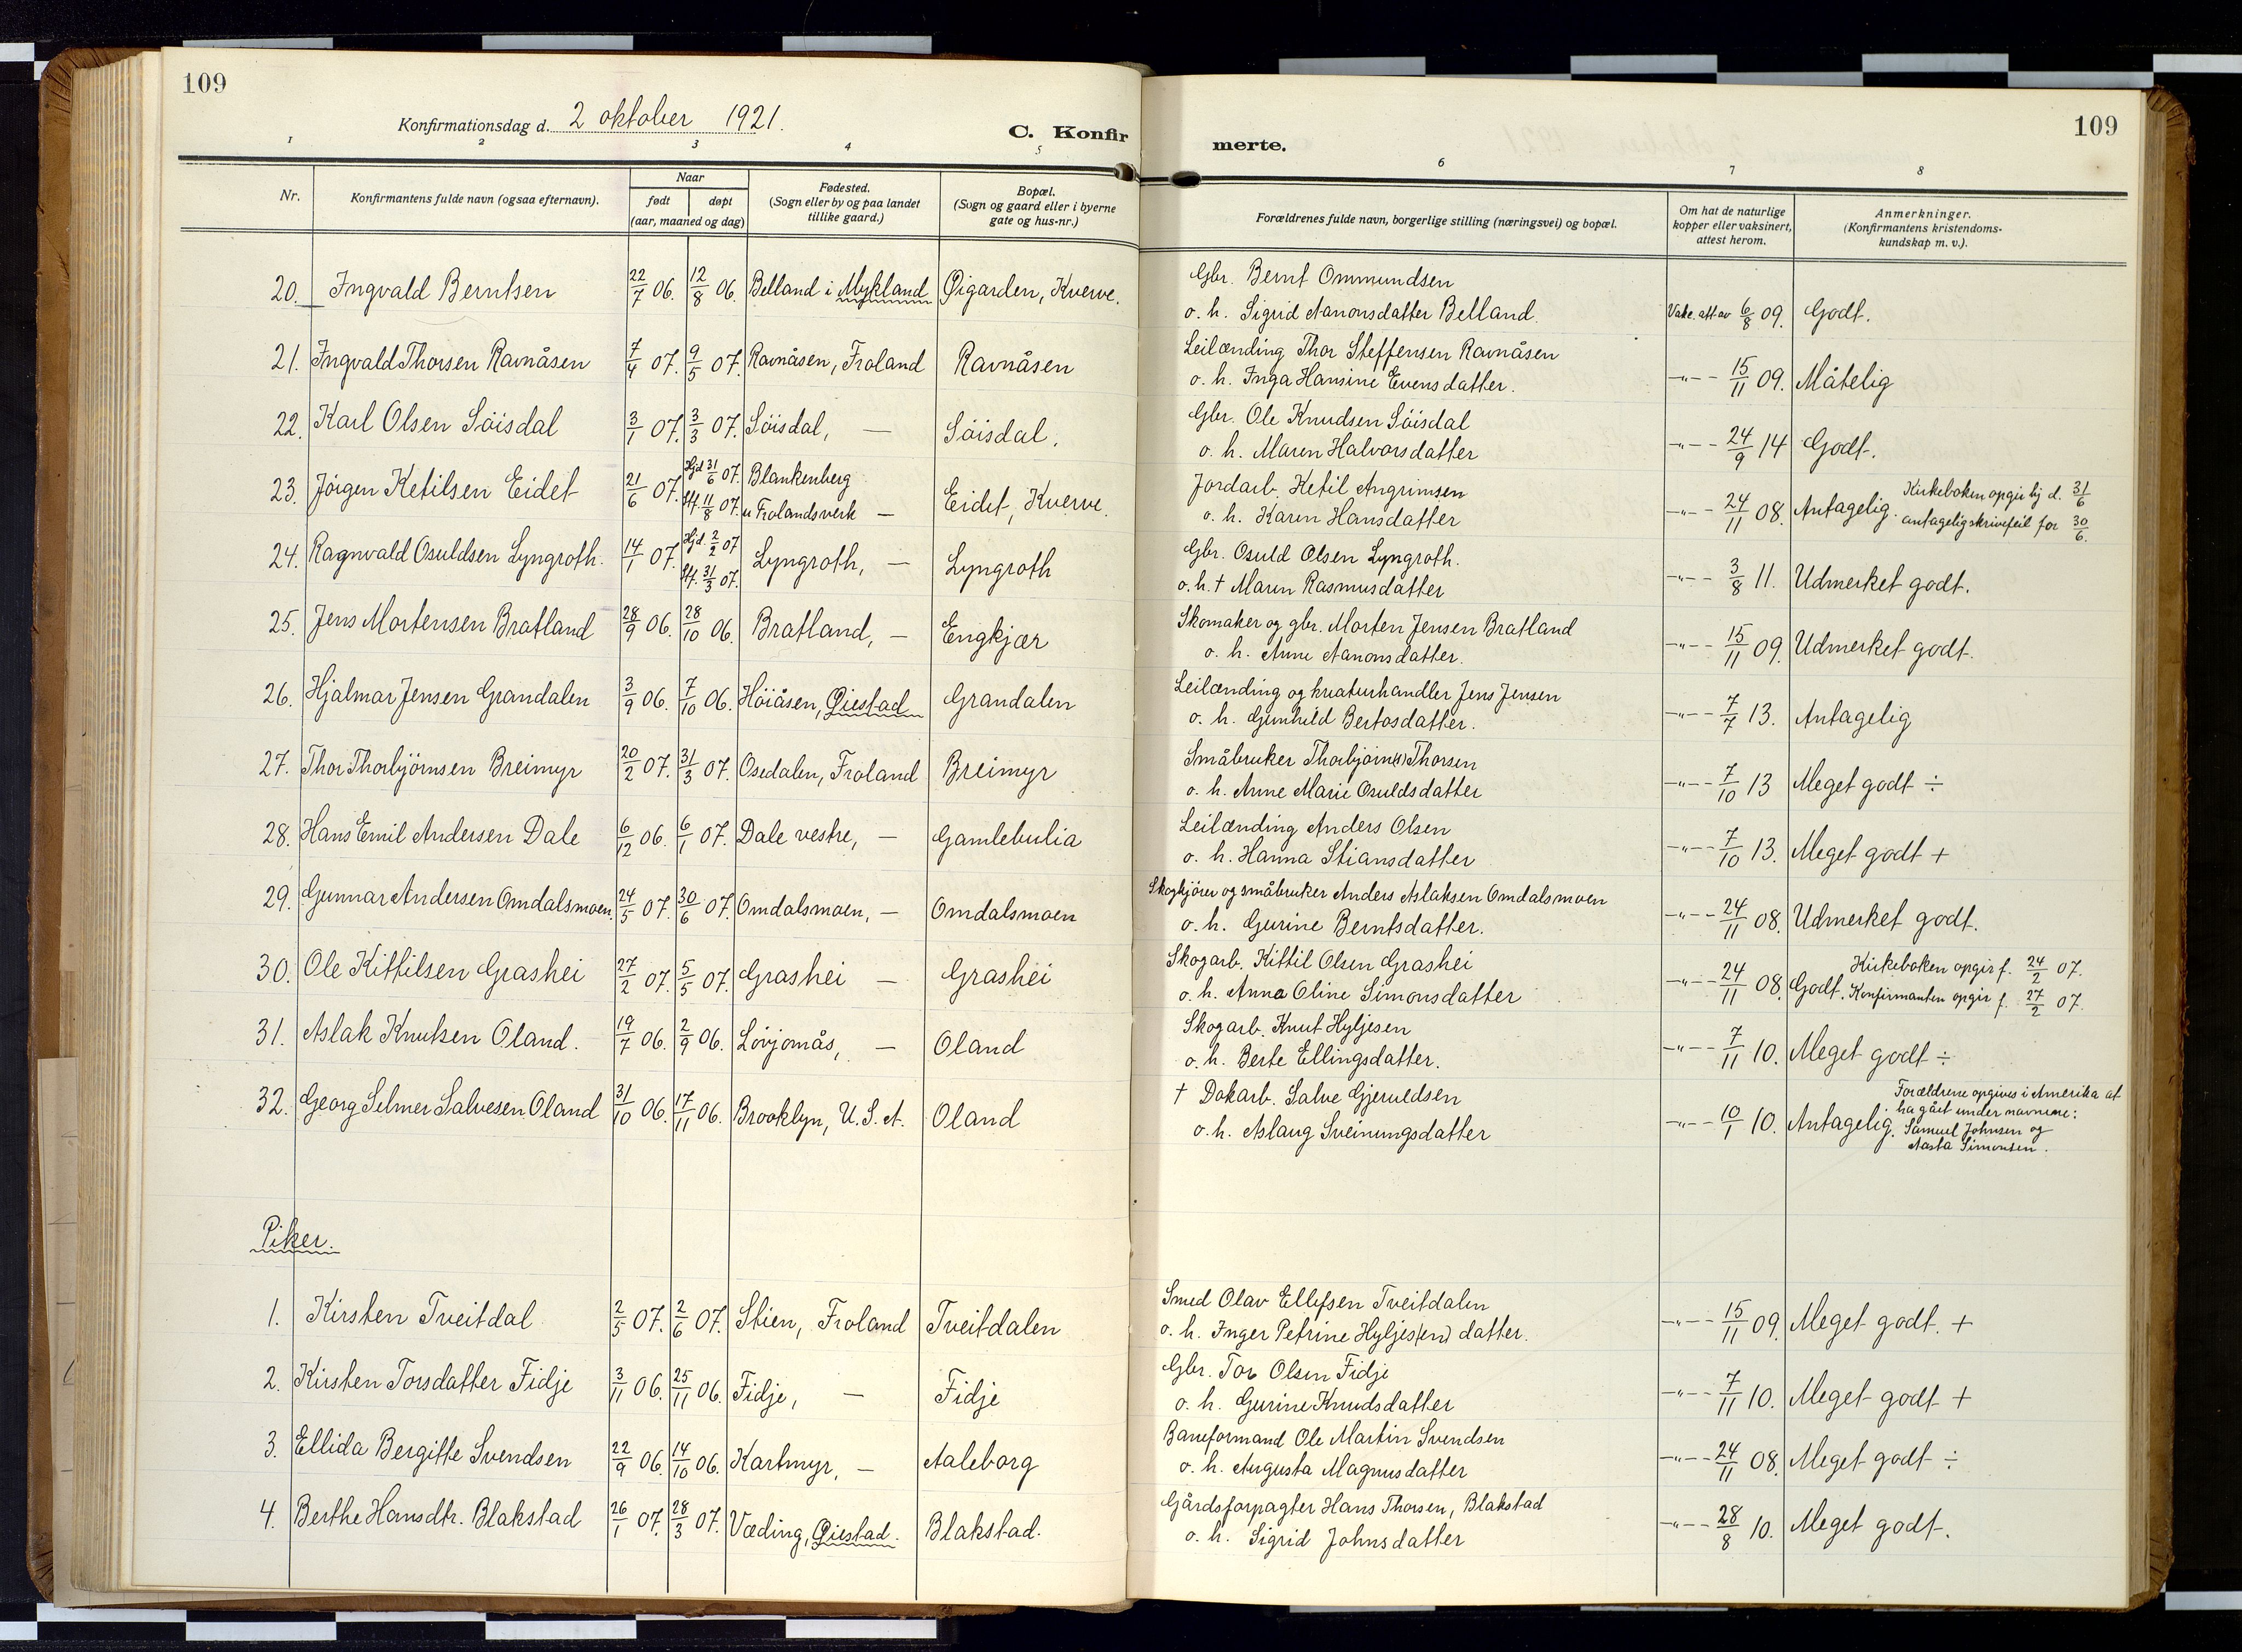 109
Konfirmationsdag d. 2 oktober 1921.
C. Konfir
merte.
109
1 2 3 4 5 6 7 8
Nr.
Konfirmantens fulde navn (ogsaa efternavn).
Naar
født døpt
(aar, maaned og dag)
Fødested.
(Sogn eller by og paa landet
tillike gaard.)
Bopæl.
(Sogn og gaard eller i byerne
gate og hus-nr.)
Forældrenes fulde navn, borgerlige stilling (næringsvei) og bopæl.
Om hat de naturlige
kopper eller vaksinert,
attest herom.
Anmerkninger.
(Konfirmantens kristendoms-
kundskap m. v.).
20. Ingvald Berntsen 22/7 06. 12/8 06. Belland i Mykland Øigarden, Kverve.
Gbr. Bernt Ommundsen
o. h. Sigrid Aanonsdatter Belland. Vakc. att av 6/8 09. Godt.
21. Ingvald Thorsen Ravnåsen 7/4 07. 9/5 07. Ravnåsen, Froland Ravnåsen
Leilænding Thor Steffensen Ravnåsen
o. h. Inga Hansine Evensdatter. -"-- 15/11 09. Måtelig
22. Karl Olsen Söisdal 3/1 07. 3/3 07. Söisdal, — Söisdal.
Gbr. Ole Knudsen Söisdal
o. h. Maren Halvorsdatter -"-- 24/9 14 Godt.
23. Jörgen Ketilsen Eidet 21/6 07. Hjd 31/6 07. Stf. 11/8 07. Blankenberg
u Frolandsverk — Eidet, Kverve.
Jordarb. Ketil Angrimsen
o. h. Karen Hansdatter -"-- 24/11 08. Antagelig. Kirkeboken opgir hj d. 31/6
antagelig skrivefeil for 30/6.
24. Ragnvald Osuldsen Lyngroth. 14/1 07. Hjd. 2/2 07 Stf. 31/3 07. Lyngroth, — Lyngroth
Gbr. Osuld Olsen Lyngroth.
o. h. † Maren Rasmusdatter -"-- 3/8 11. Udmerket godt.
25. Jens Mortensen Bratland 28/9 06. 28/10 06. Bratland, — Engkjær
Skomaker og gbr. Morten Jensen Bratland
o. h. Anne Aanonsdatter. -"-- 15/11 09. Udmerket godt.
26. Hjalmar Jensen Grandalen 3/9 06. 7/10 06. Höiåsen, Øiestad Grandalen
Leilænding og kreaturhandler Jens Jensen
o. h. Gunhild Bertosdatter. -"-- 7/7 13. Antagelig
27. Thor Thorbjörnsen Breimyr 20/2 07. 31/3 07. Osedalen, Froland Breimyr
Småbruker Thorbjörn(s) Thorsen
o. h. Anne Marie Osuldsdatter -"-- 7/10 13 Meget godt ÷
28. Hans Emil Andersen Dale 6/12 06. 6/1 07. Dale vestre, — Gamlebulia
Leilænding Anders Olsen
o. h. Hanna Stiansdatter -"-- 7/10 13. Meget godt +
29. Gunnar Andersen Omdalsmoen. 24/5 07. 30/6 07. Omdalsmoen, — Omdalsmoen
Skogkjörer og småbruker Anders Aslaksen Omdalsmoen
o. h. Gurine Berntsdatter. -"-- 24/11 08. Udmerket godt.
30. Ole Kittilsen Grashei 27/2 07. 5/5 07. Grashei — Grashei
Skogarb. Kittil Olsen Grashei
o. h. Anna Oline Simonsdatter -"-- 24/11 08. Godt. Kirkeboken opgir f. 24/2 07.
Konfirmanten opgir f. 27/2 07.
31. Aslak Knutsen Oland. 19/7 06. 2/9 06. Lövjomås, — Oland
Skogarb. Knut Hyljesen
o. h. Berte Ellingsdatter. -"-- 7/11 10. Meget godt ÷
32. Georg Selmer Salvesen Oland 31/10 06. 17/11 06. Brooklyn, U. S. A. Oland
† Dokarb. Salve Gjeruldsen
o. h. Aslaug Sveinungsdatter -"-- 10/1 10. Antagelig. Forældrene opgives i Amerika at
ha gået under navnene:
Samuel Johnsen og
Aasta Simonsen.
Piker.
1. Kirsten Tveitdal 2/5 07. 2/6 07. Stien, Froland Tveitdalen
Smed Olav Ellefsen Tveitdalen
o. h. Inger Petrine Hyljes(en) datter. -"-- 15/11 09. Meget godt. +
2. Kirsten Torsdatter Fidje 3/11 06. 25/11 06. Fidje, — Fidje
Gbr. Tor Olsen Fidje
o. h. Gurine Knudsdatter -"-- 7/11 10. Meget godt +
3. Ellida Bergitte Svendsen 22/9 06. 14/10 06. Kartmyr, — Aaleborg
Baneformand Ole Martin Svendsen
o. h. Augusta Magnusdatter -"-- 24/11 08. Meget godt ÷
4. Berthe Hansdtr. Blakstad 26/1 07. 28/3 07. Væding, Øiestad. Blakstad.
Gårdsforpagter Hans Thorsen, Blakstad
o. h. Sigrid Johnsdatter -"-- 28/8 10. Meget godt.